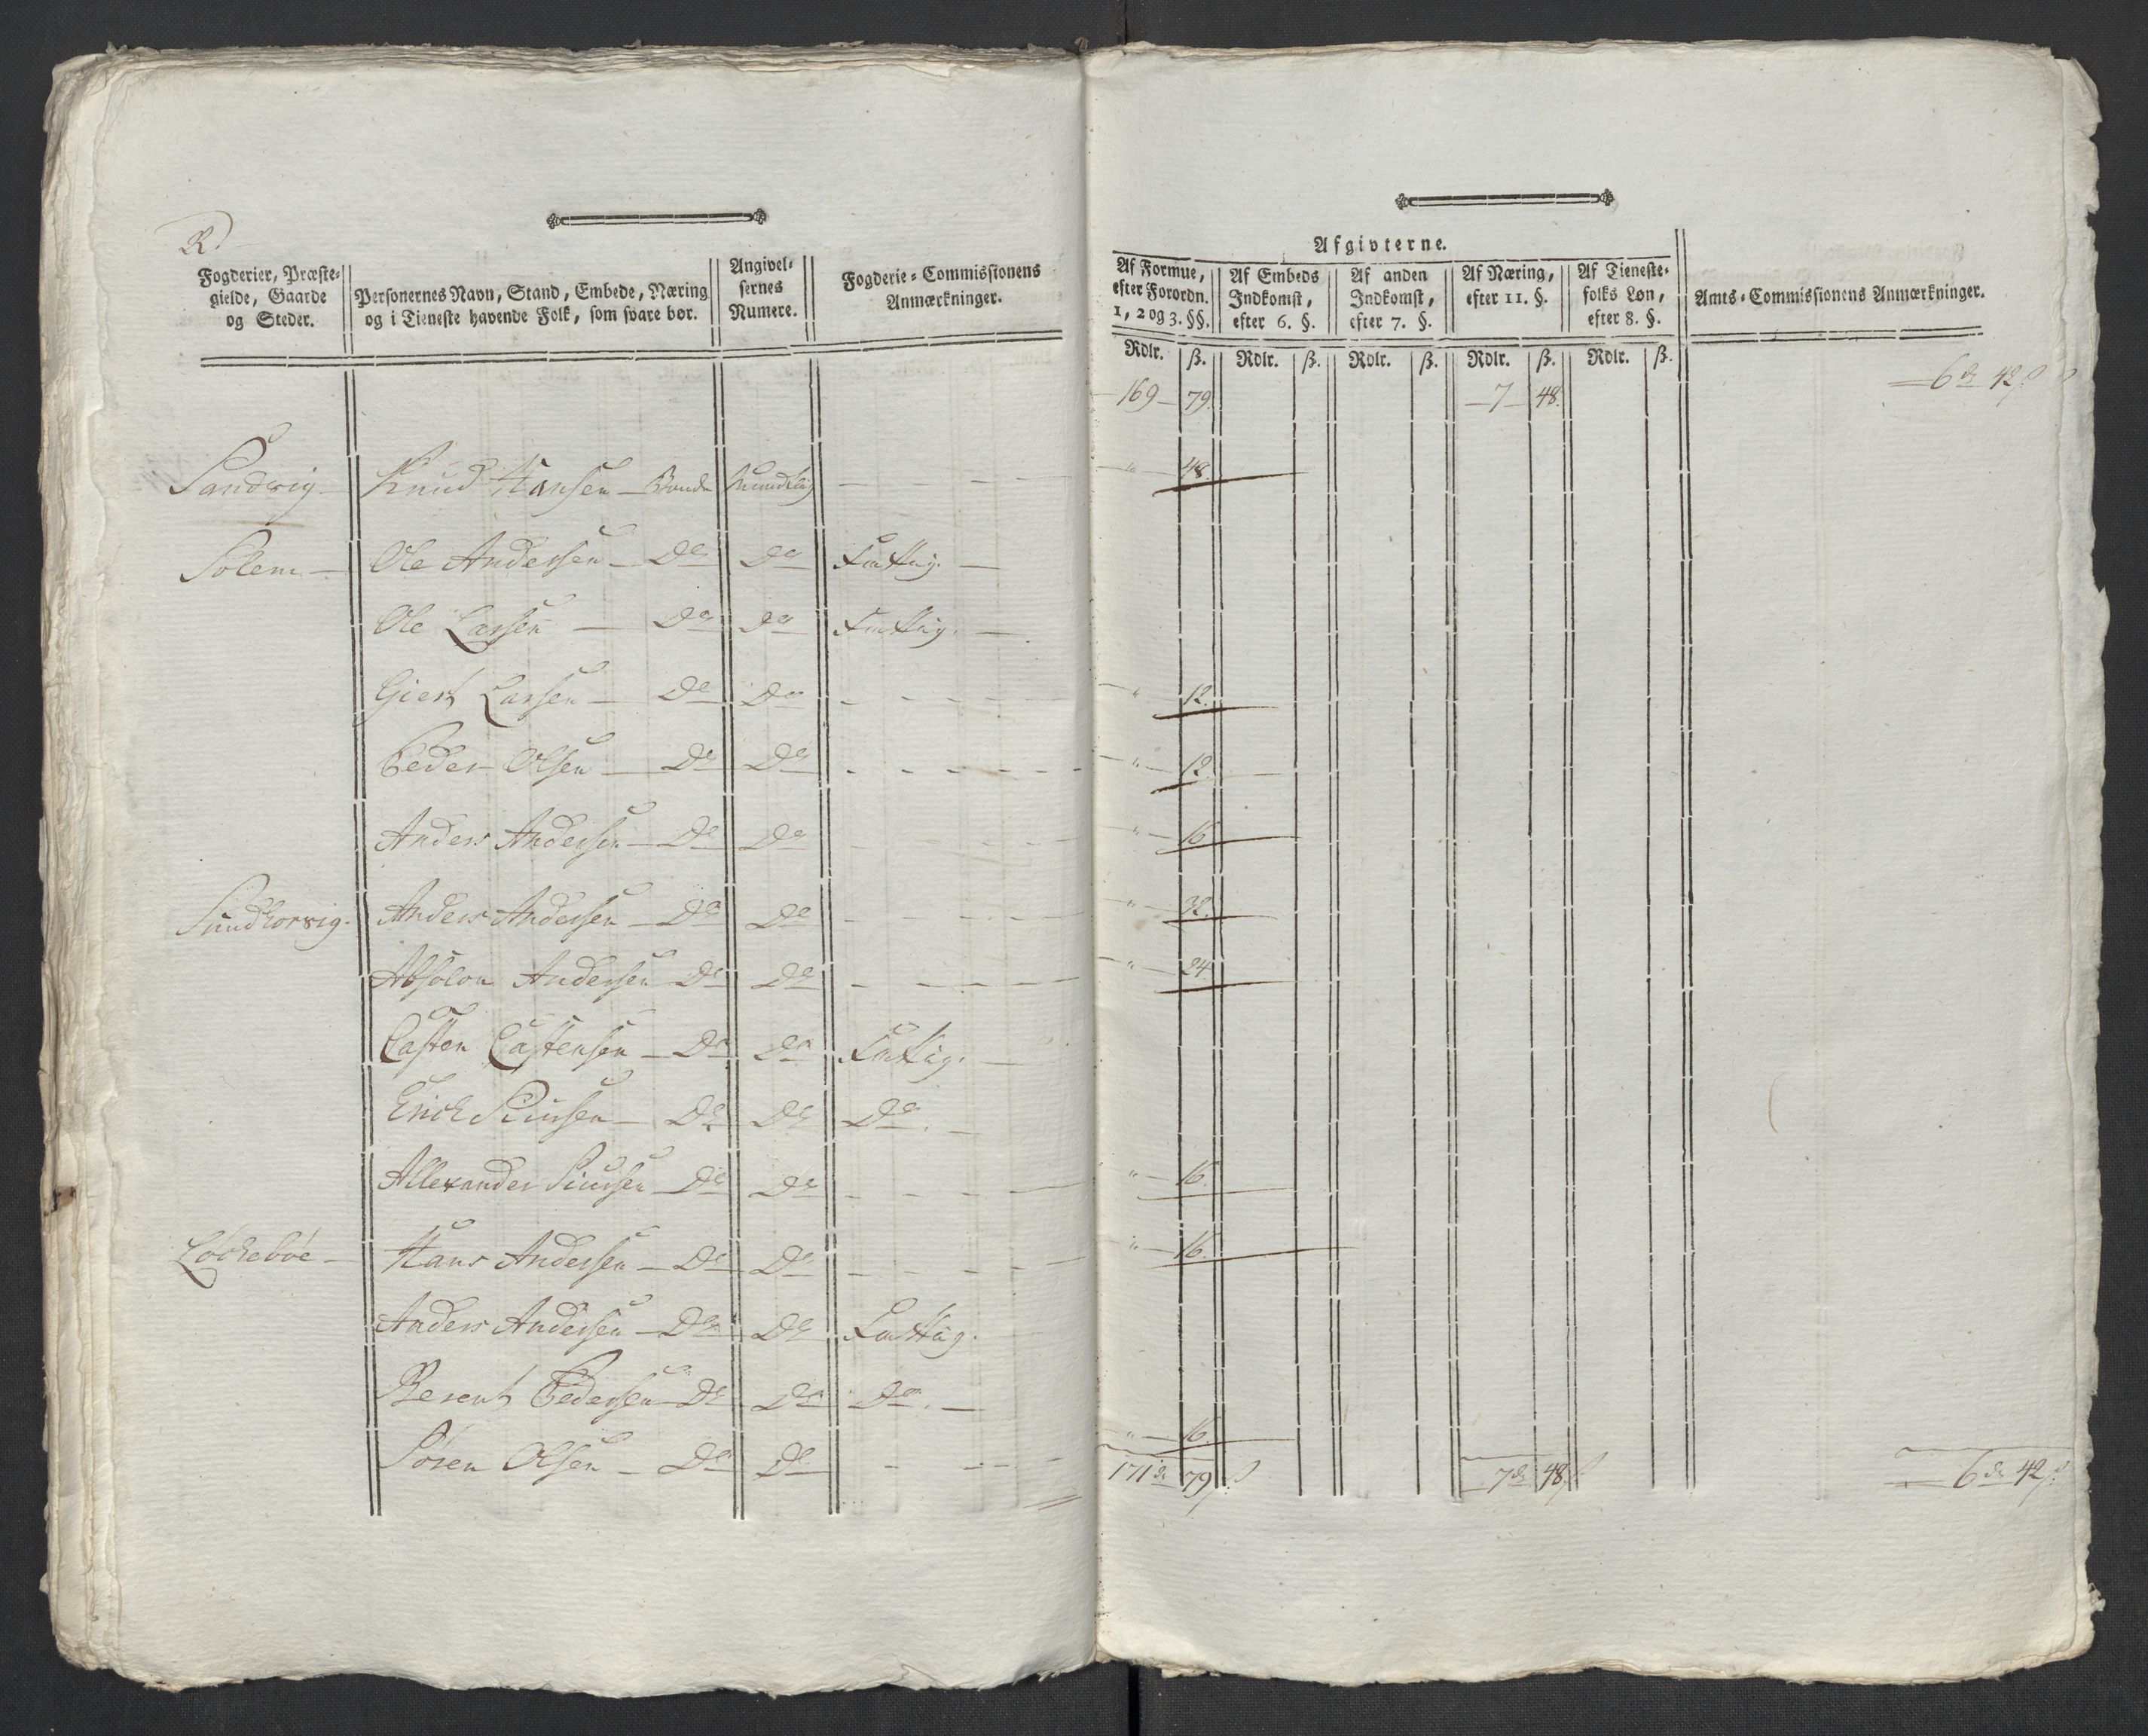 R.
Fogderier, Præste-
gielde, Gaarde
og Steder.
Personernes Navn, Stand, Embede, Næring
og i Tieneste havende Folk, som svare bør.
Angivel-
sernes
Numere.
Fogderie-Commissionens
Anmærkninger.
Afgivterne.
Af Formue,
efter Forordn.
1, 2 og 3. §§.
Af Embeds
Indkomst,
efter 6. §.
Af anden
Indkomst,
efter 7. §.
Af Næring,
efter 11. §.
Af Tieneste-
folks Løn,
efter 8. §.
Amts-Commissionens Anmærkninger.
Rdlr. ß. Rdlr. ß. Rdlr. ß. Rdlr. ß. Rdlr. ß.
169 79. 7 48. 6 42
Sandvig Knud Hansen Bonde Mundtlig 48.
Solem Ole Andersen Do Do Fattig.
Ole Larsen Do Do Fattig.
Giert Larsen Do Do " 12.
Peder Olsen Do Do " 12.
Anders Andersen Do Do " 16
Sundhorvig. Anders Andersen Do Do " 32.
Absolon Andersen Do Do " 24
Casten Castensen Do Do Fattig.
Erich Siursen Do Do Do.
Allexander Siursen Do Do " 16.
Løchebøe Hans Andersen Do Do " 16.
Anders Andersen Do Do Fattig.
Berent Pedersen Do Do Do.
Søren Olsen Do Do " 16.
171 79 7 48 6 42